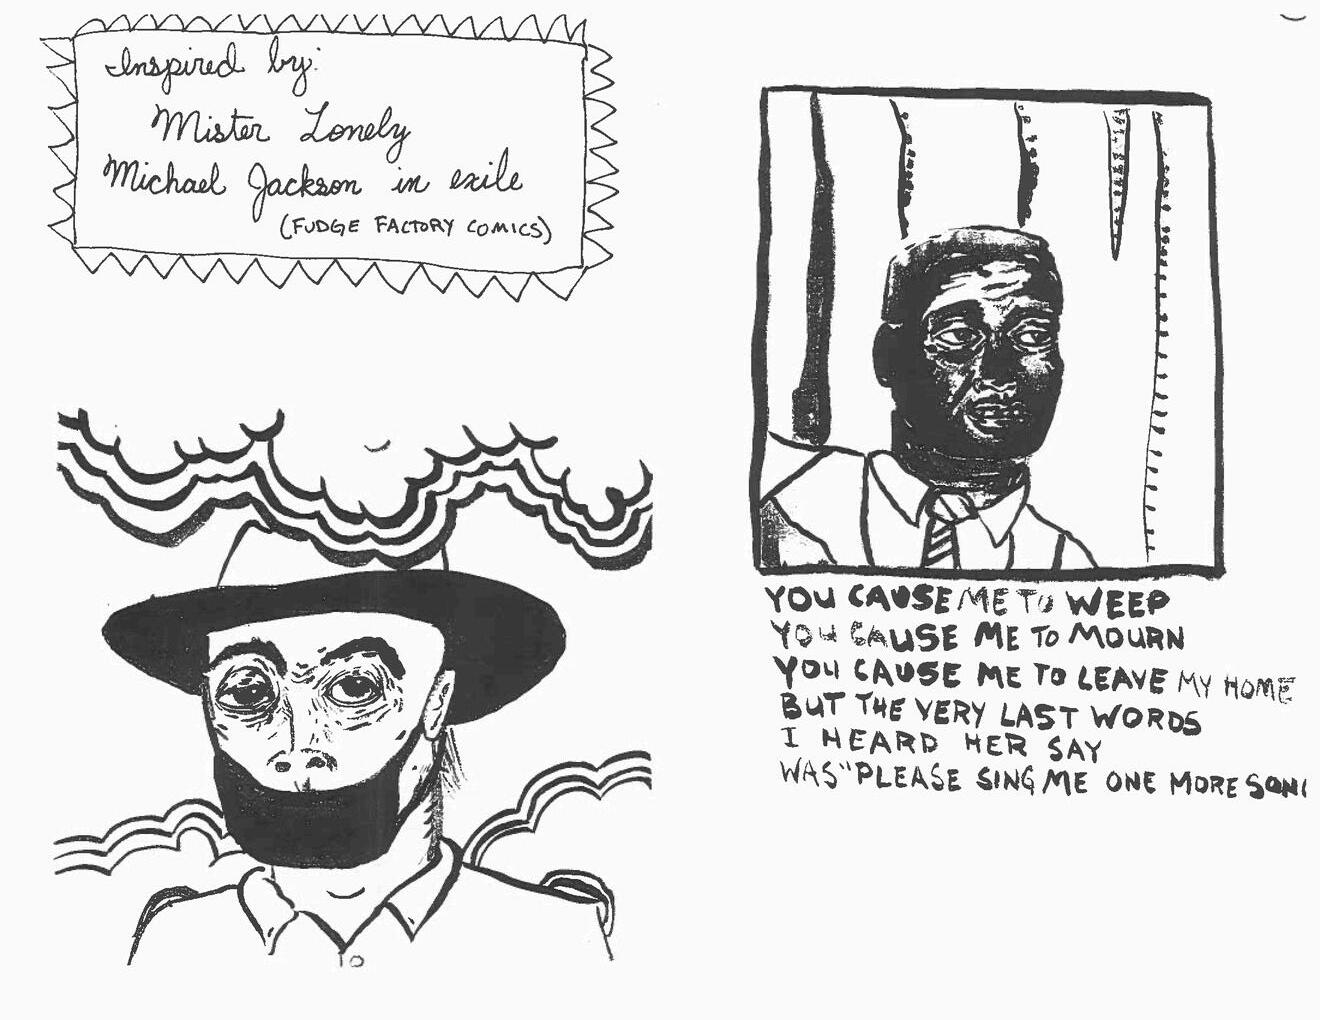 Inspired by:
Mister Lonely
Michael Jackson in exile
(FUDGE FACTORY COMICS)
YOU CAUSE ME TO WEEP
YOU CAUSE ME TO MOURN
YOU CAUSE ME TO LEAVE MY HOME
BUT THE VERY LAST WORDS
I HEARD HER SAY
WAS "PLEASE SING ME ONE MORE SONG